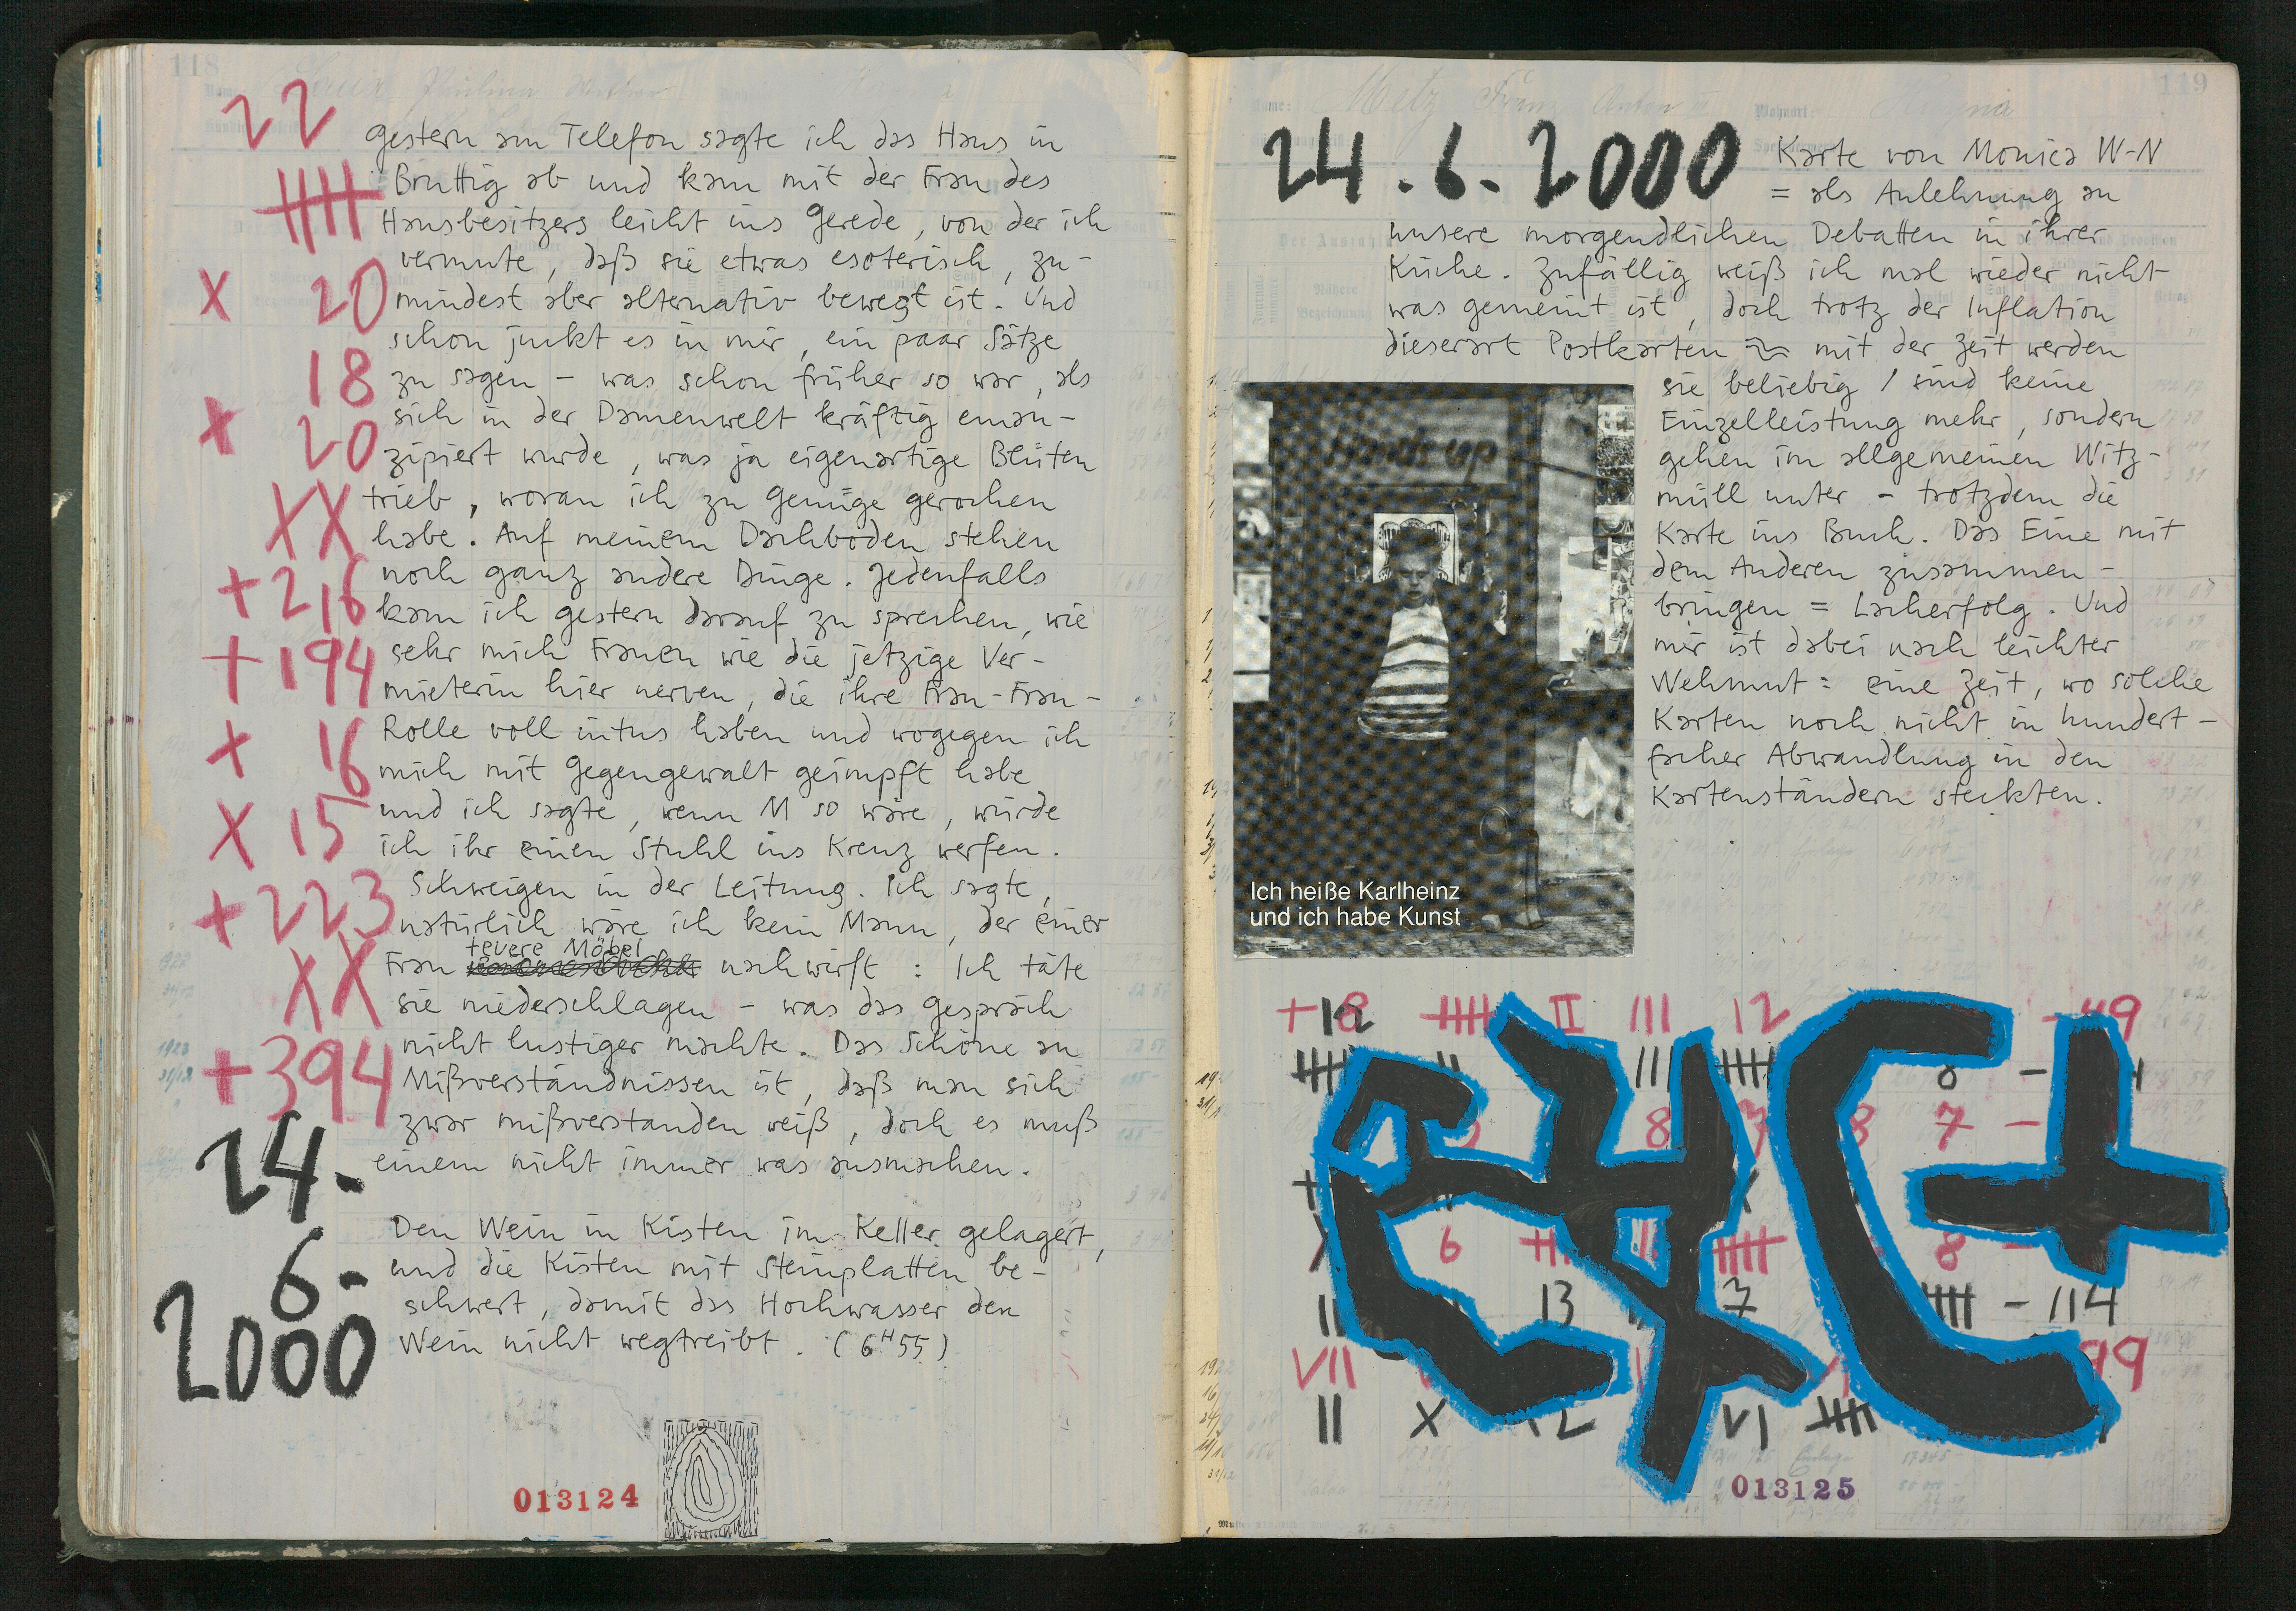 118
22
gestern am Telefon sagte ich das Haus in
Bruttig ab und kam mit der Frau des
Hausbesitzers leicht ins Gerede, von der ich
vermute, daß sie etwas esoterisch, zu-
x 20 mindest aber alternativ bewegt ist. Und
schon juckt es in mir, ein paar Sätze
18 zu sagen – was schon früher so war, als
x 20 sich in der Damenwelt kräftig eman-
zipiert wurde, was ja eigenartige Blüten
XX trieb, woran ich zu Genüge gerochen
habe. Auf meinem Dachboden stehen
+216 noch ganz andere Dinge. Jedenfalls
kam ich gestern darauf zu sprechen, wie
+194 sehr mich Frauen wie die jetzige Ver-
mieterin hier nerven, die ihre Frau-Frau-
x 16 Rolle voll intus haben und wogegen ich
mich mit Gegengewalt geimpft habe
x 15 und ich sagte, wenn M so wäre, würde
ich ihr einen Stuhl ins Kreuz werfen.
+223 Schweigen in der Leitung. Ich sagte,
natürlich wäre ich kein Mann, der einer
teuere Möbel
XX Frau nachwirft : Ich täte
sie niederschlagen – was das Gespräch
+394 nicht lustiger machte. Das Schöne an
Mißverständnissen ist, daß man sich
zwar mißverstanden weiß, doch es muß
24. einem nicht immer was ausmachen.
6. Den Wein in Kisten im Keller gelagert,
und die Kisten mit Steinplatten be-
2000 schwert, damit das Hochwasser den
Wein nicht wegtreibt. (6H55)
013124
119
Metz Franz Anton
24.6.2000
Karte von Monica W-N
= als Anlehnung an
unsere morgendlichen Debatten in ihrer
Küche. Zufällig weiß ich mal wieder nicht
was gemeint ist, doch trotz der Inflation
dieserart Postkarten ≈ mit der Zeit werden
sie beliebig / sind keine
Einzelleistung mehr, sondern
gehen im allgemeinen Witz-
müll unter – trotzdem die
Karte ins Buch. Das Eine mit
dem Anderen zusammen-
bringen = Lacherfolg. Und
mir ist dabei nach leichter
Wehmut: eine Zeit, wo solche
Karten noch nicht in hundert-
facher Abwandlung in den
Kartenständern steckten.
Hands up
Ich heiße Karlheinz
und ich habe Kunst
II III 12
8 7 –
6 8
13 7 – 114
VII 99
II X 12 VI
013125